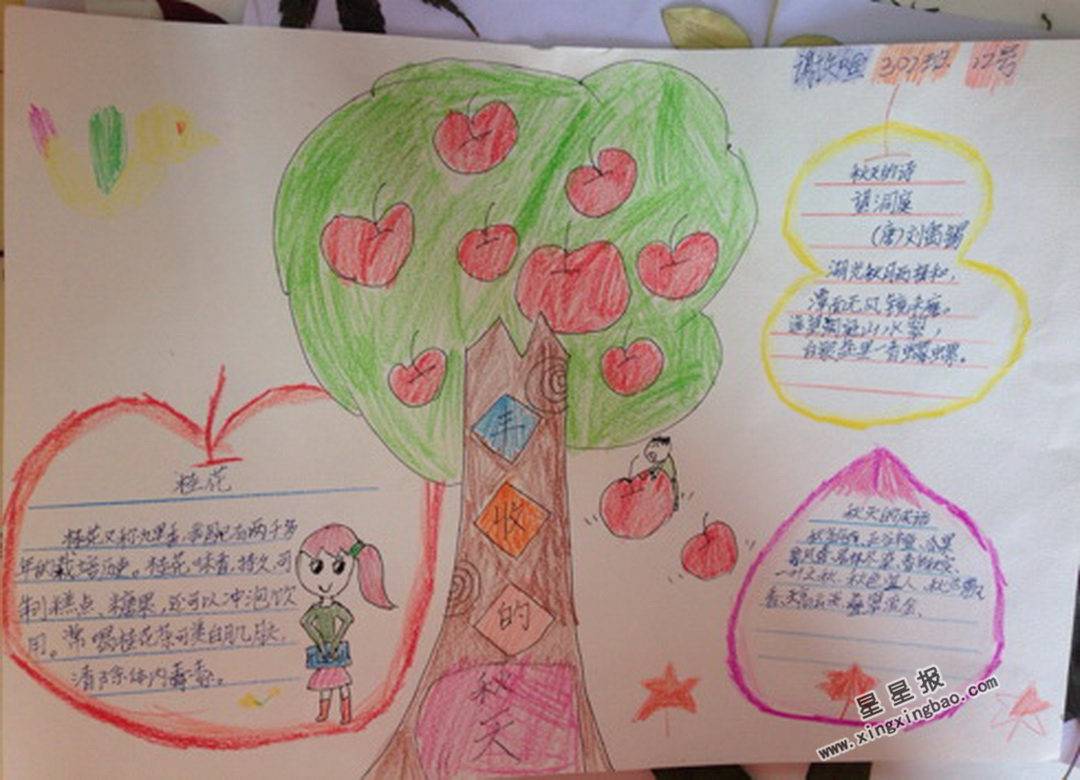 302班 12号
丰
收
的
秋
天
秋天的诗
望洞庭
(唐)刘禹锡
湖光秋月两相和，
潭面无风镜未磨。
遥望洞庭山水翠，
白银盘里一青螺
桂花
桂花又称九里香，我国已有两千多
年的栽培历史。桂花，味香，持久，可
制糕点、糖果，还可以冲泡饮
用。常喝桂花茶可美白肌肤，
清除体内毒素。
秋天的成语
秋高气爽、五谷丰登、瓜果
一叶知秋、秋色宜人、
天高云淡、叠翠流金、
星星报
www.xingxingbao.com